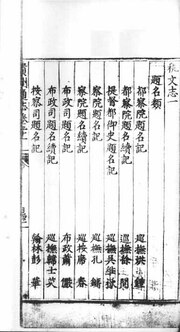 秘文志一
題名類
都察院題名記　廵撫洪鍾
都察院題名續記　廵撫徐問
提督都御史題名記　廵撫吳維嶽
察院題名記　廵撫孔鏞
察院題名續記　廵按唐春
布政司題名記　布政蕭儼
布政司題名續記　廵撫韓士英
按察司題名記　翰林彭華